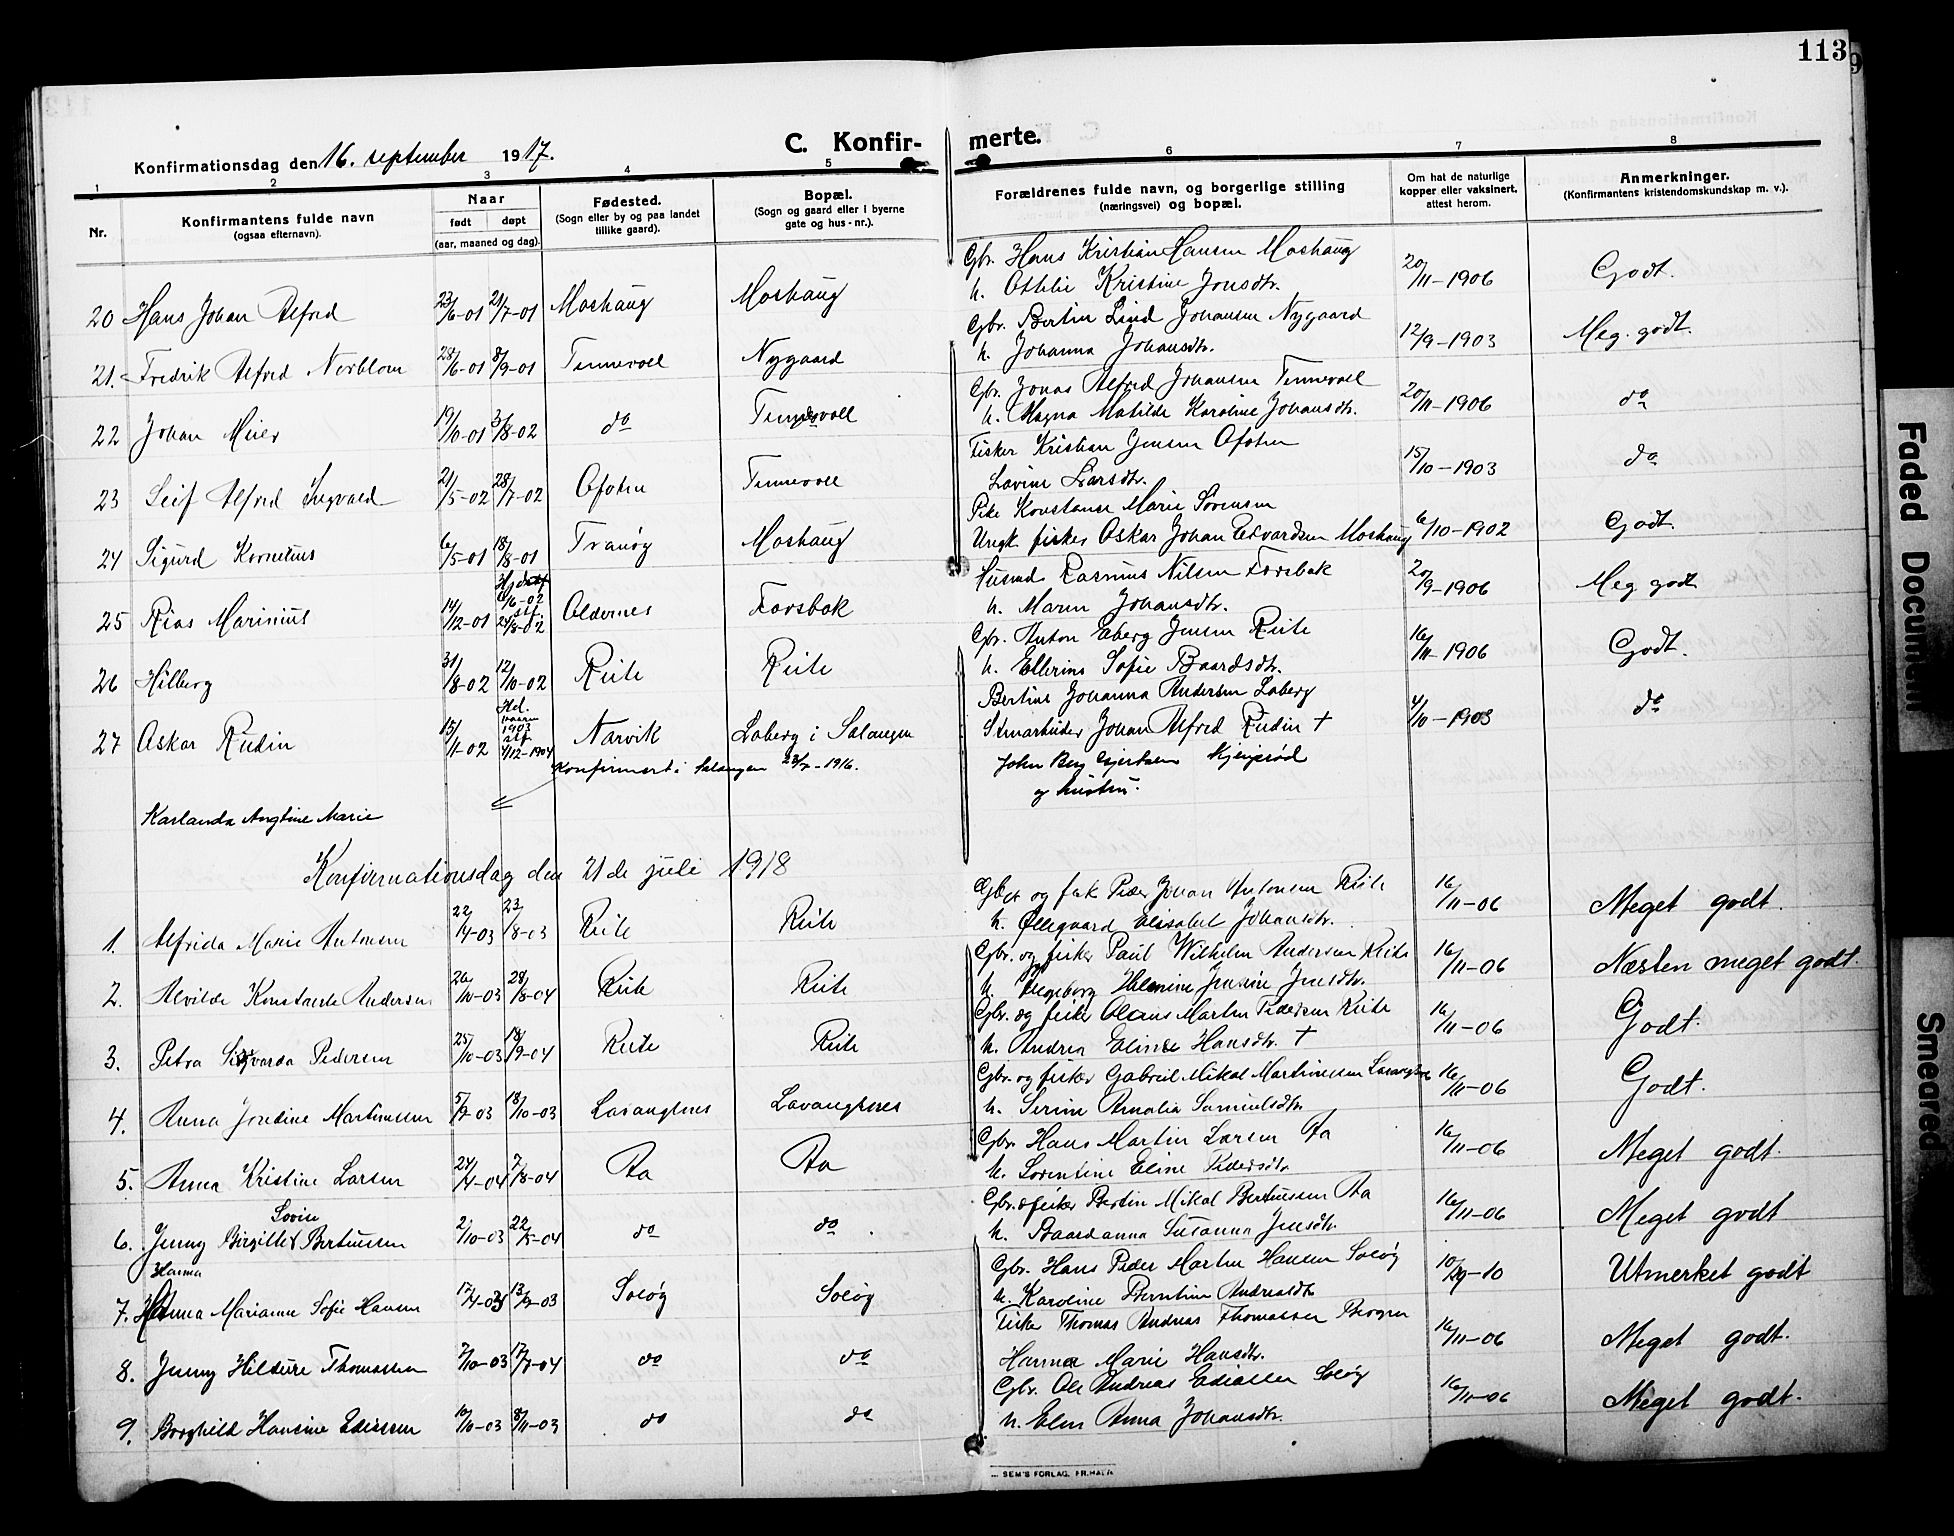 113
Konfirmationsdag den 16. september 1917.
C. Konfirmerte.
1 2 3 4 5 6 7 8
Nr.
Konfirmantens fulde navn
(ogsaa efternavn).
Naar
født døpt
(aar, maaned og dag).
Fødested.
(Sogn eller by og paa landet
tillike gaard).
Bopæl.
(Sogn og gaard eller i byerne
gate og hus-nr.).
Forældrenes fulde navn, og borgerlige stilling
(næringsvei) og bopæl.
Om hat de naturlige
kopper eller vaksinert.
attest herom.
Anmerkninger.
(Konfirmantens kristendomskundskap m. v.).
20 Hans Johan Alfred 23/6-01 21/7-01 Moshaug Moshaug
Gbr. Hans Kristian Hansen Moshaug
h. Othlie Kristine Jonsdtr. 20/11-1906 Godt.
21. Fredrik Alfred Norblom 28/6-01 8/9-01 Tennevoll Nygaard
Gbr. Bertin Lind Johansen Nygaard
h. Johanna Johansdtr. 12/9-1903 Meg. godt.
22 Johan Meier 19/10-01 3/8-02 do Tennevoll
Gbr. Jonas Alfred Johansen Tennevoll
h. Magna Matilde Karoline Johansdtr. 20/11-1906 do
23 Leif Alfred Ingvald 21/5-02 28/7-02 Ofoten Tennevoll
Fisker Kristian Jensen Ofoten
Lovine Larsdtr. 15/10-1903 do
24 Sigurd Kornelius 6/5-01 18/8-01 Tranøy Moshaug
Pike Konstanse Marie Sørensen
Ungk. fisker Oskar Johan Edvardsen Moshaug 6/10-1902 Godt.
25 Rias Marinius 14/12-01 Hjdøbt 8/6-02 stf. 24/8-02 Oldernes Forsbak
Husmd. Rasmus Nilsen Forsbak
h. Maren Johansdtr. 20/9-1906 Meg godt
26 Hilberg 31/8-02 12/10-02 Reite Reite
Gbr. Anton Eberg Jensen Reite
h. Ellerine Sofie Baardsdtr. 16/11-1906 Godt.
27 Oskar Rudin 15/11-02 Hd. vaaren 1903 stf. 4/12-1904 Narvik Laberg i Salangen
Bertine Johanna Andersen Laberg
Stenarbeider Johan Alfred Rudin † 4/10-1903 do
Konfirmert i Salangen 23/7-1916.
John Berg Gjertsen
og hustru.
Karlanda Angtine Marie
Konfirmationsdag den 21de juli 1918
1. Alfrida Marie Antonsen 22/4-03 23/8-03 Reite Reite
Gbr. og fisk Peder Johan Antonsen Reite
h. Øllegaard Elisabet Johansdtr. 16/11-06 Meget godt.
2. Alvilde Konstanse Andersen 26/10-03 28/8-04 Reite Reite
Gbr. og fisker Paul Wilhelm Andersen Reite
h. Ingeborg Helmine Jensine Jensdtr. 16/11-06 Næsten meget godt.
3. Petra Sigvarda Pedersen 25/10-03 18/9-04 Reite Reite
Gbr. og fisker Olaus Martin Pedersen Reite
h. Andrea Eline Hansdtr. † 16/11-06 Godt.
4. Anna Jondine Martinussen 5/7-03 18/10-03 Lavangsnes Lavangsnes
Gbr. og fisker Gabriel Mikal Martinussen Lavangsnes
h. Serine Amalia Samuelsdtr. 16/11-06 Godt.
5. Anna Kristine Larsen 24/4-04 7/8-04 Aa Aa
Gbr. Hans Martin Larsen Aa
h. Lorentine Eline Pedersdtr. 16/11-06 Meget godt.
6. Jenny Birgitte Lovise Bertinussen 2/10-03 22/5-04 do do.
Gbr. & fisker Bertin Mikal Bertinussen Aa
h. Baardanna Susanna Jensdtr. 16/11-06 Meget godt
Hanna
7. Marianne Sofie Hansen 17/4-03 13/7-03 Soløy Soløy
Gbr. Hans Peder Martin Hansen Soløy
h. Karoline Berntine Andreasdtr. 10/9-10 Utmerket godt
8. Jenny Hildure Thomassen 7/10-03 17/7-04 do do
Fisker Thomas Andreas Thomassen
Hanna Marie Hansdtr. 16/11-06 Meget godt.
9. Borghild Hansine Ediassen 10/10-03 8/11-03 do do
Gbr. Ole Andreas Ediassen Soløy
h. Elen Anna Johansdtr. 16/11-06 Meget godt.
SEM'S FORLAG, FR.HALD
Faded Document
Smeared